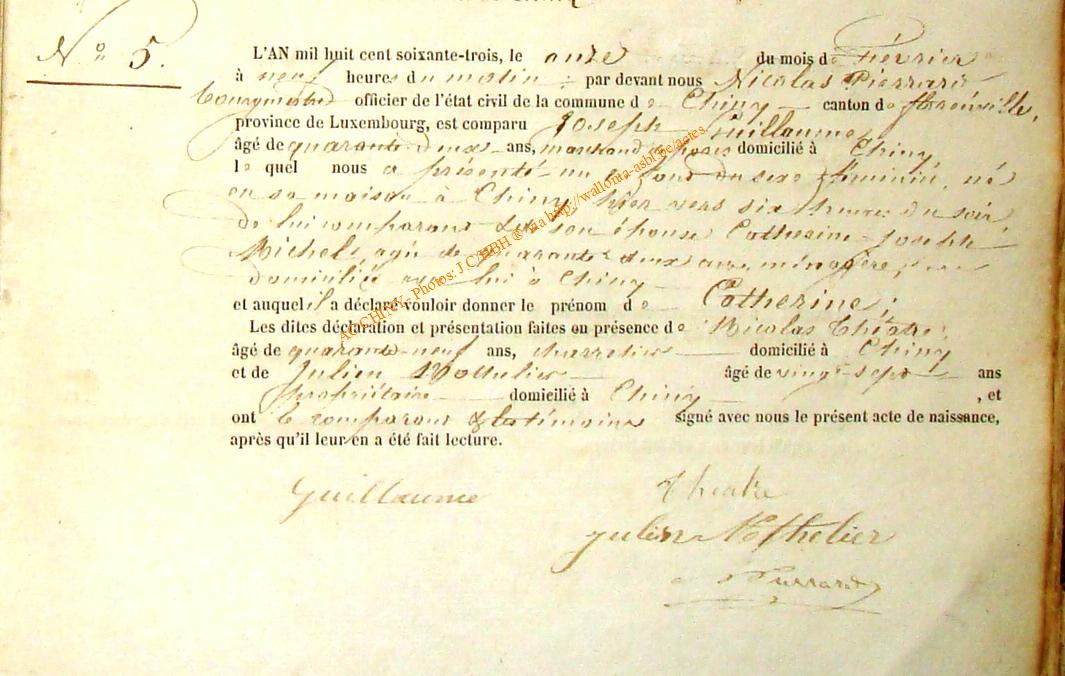 N° 5.
L'AN mil huit cent soixante-trois, le onze du mois de Février
à neuf heures du matin : par devant nous Nicolas Pierrard
bourgmestre officier de l'état civil de la commune de Chiny canton de florenville,
province de Luxembourg, est comparu Joseph Guillaume,
âgé de quarante deux ans, marchand de bois domicilié à Chiny,
lequel nous a présenté un enfant du sexe féminin, né
en sa maison à Chiny, hier vers six heures du soir
de lui comparant & de son épouse Catherine-Joseph
Michel, agée de quarante deux ans, ménagère,
domiciliée avec lui à Chiny
et auquel il a déclaré vouloir donner le prénom de Catherine;
Les dites déclaration et présentation faites en présence de Nicolas Théatre
âgé de quarante-neuf ans, charretier domicilié à Chiny
et de Julien âgé de vingt-sept ans
propriétaire domicilié à Chiny , et
ont le comparant & les témoins signé avec nous le présent acte de naissance,
après qu'il leur en a été fait lecture.
Guillaume Theatre
julien
Pierrard
AC CHINY - Photos: J.C. HBH © via http://wallonia-asbl.be/actes.